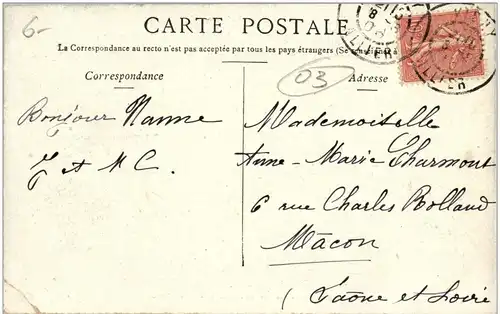 6-
CARTE POSTALE
La Correspondance au recto n'est pas acceptée par tous les pays étrangers (Se
Correspondance
Adresse
03
Bonjour Nanne
J et M C.
Mademoiselle
Anne-Marie Charmont
6 rue Charles Rolland
Mâcon
(Saône et Loire
ALLIER